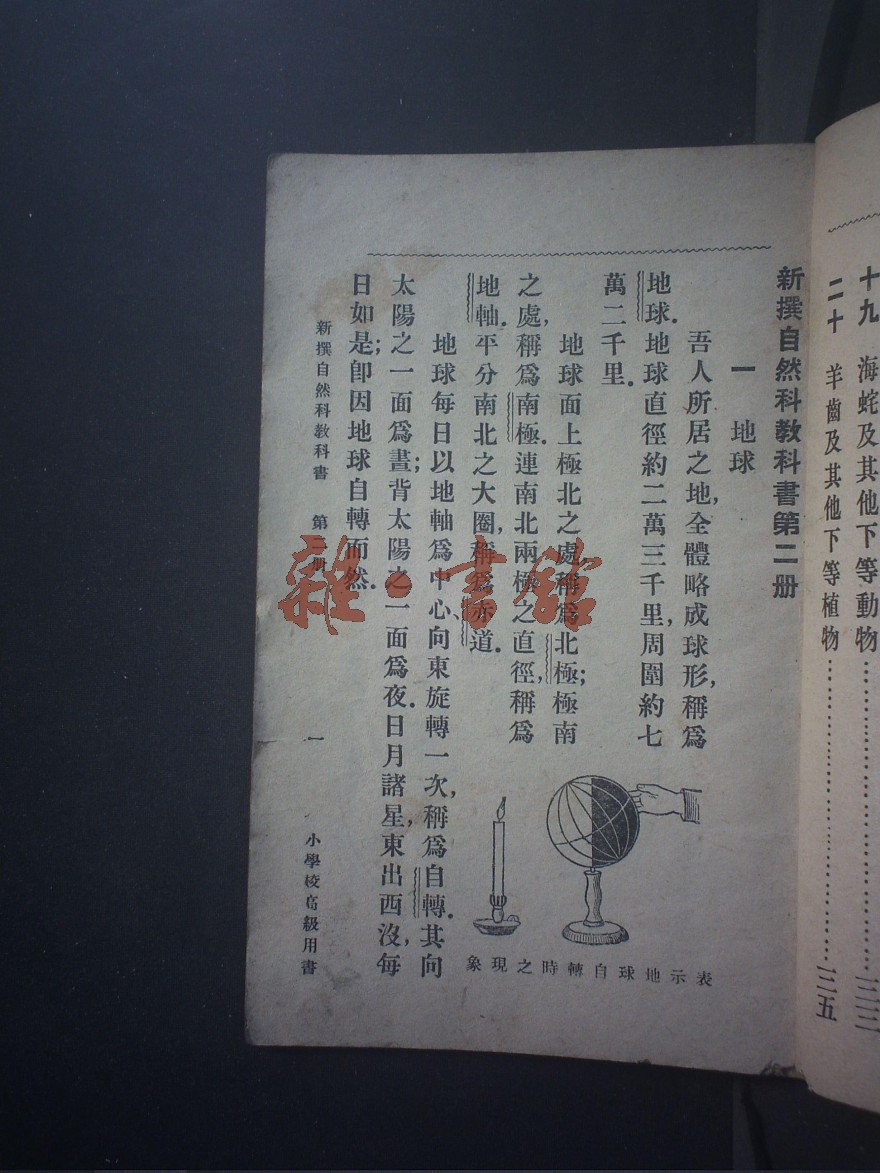 十九 海蛇及其他下等動物……三三
二十 羊齒及其他下等植物……三五
新撰自然科教科書第二册
一 地球
吾人所居之地,全體略成球形,稱爲
地球.地球直徑約二萬三千里,周圍約七
萬二千里.
地球面上極北之處,稱爲北極;極南
之處,稱爲南極.連南北兩極之直徑,稱爲
地軸.平分南北之大圈,稱爲赤道.
地球每日以地軸爲中心、向東旋轉一次,稱爲自轉.其向
太陽之一面爲晝;背太陽之一面爲夜.日月諸星,東出西沒,每
日如是;卽因地球自轉而然.
表示地球自轉時之現象
新撰自然科教科書 第二册 一 小學校高級用書
雜·書館